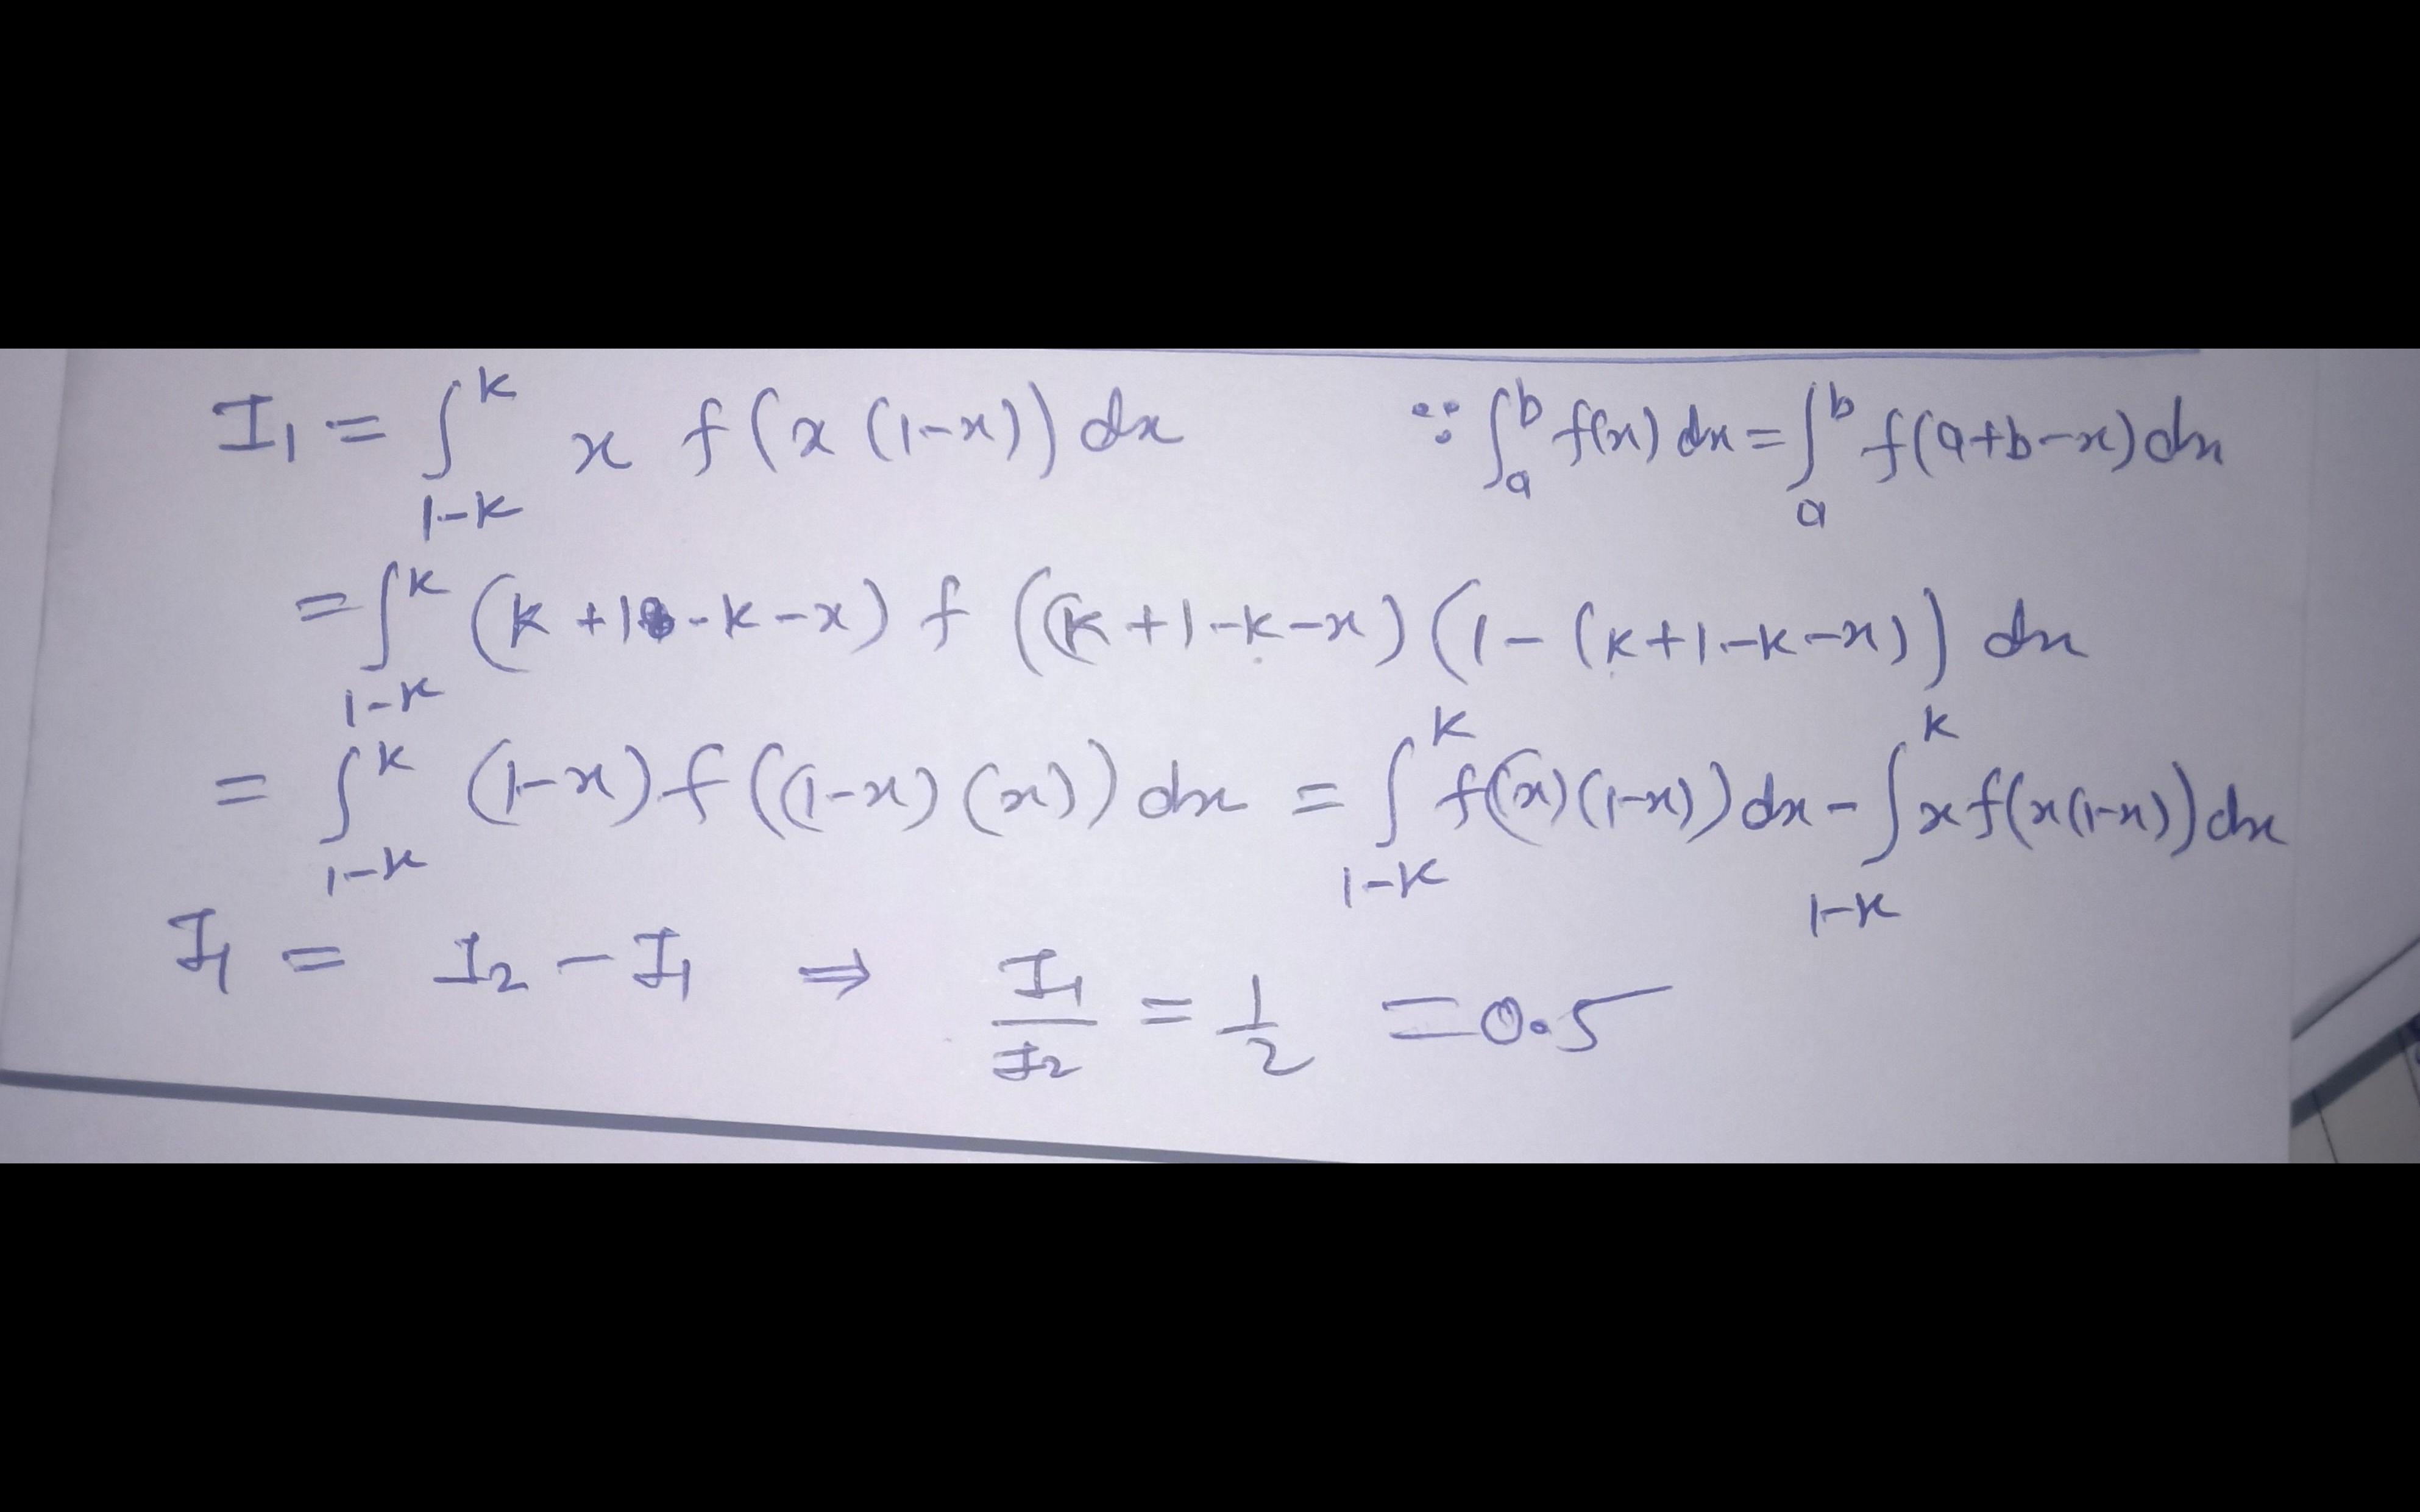 I₁ = ∫_{1-k}^{k} x f(x(1-x)) dx ∵ ∫_{a}^{b} f(x) dx = ∫_{a}^{b} f(a+b-x) dx
= ∫_{1-k}^{k} (k+1-k-x) f((k+1-k-x)(1-(k+1-k-x)) dx
= ∫_{1-k}^{k} (1-x) f((1-x)(x)) dx = ∫_{1-k}^{k} f((x)(1-x)) dx - ∫_{1-k}^{k} x f(x(1-x)) dx
I₁ = I₂ - I₁ ⇒ I₁/I₂ = 1/2 = 0.5